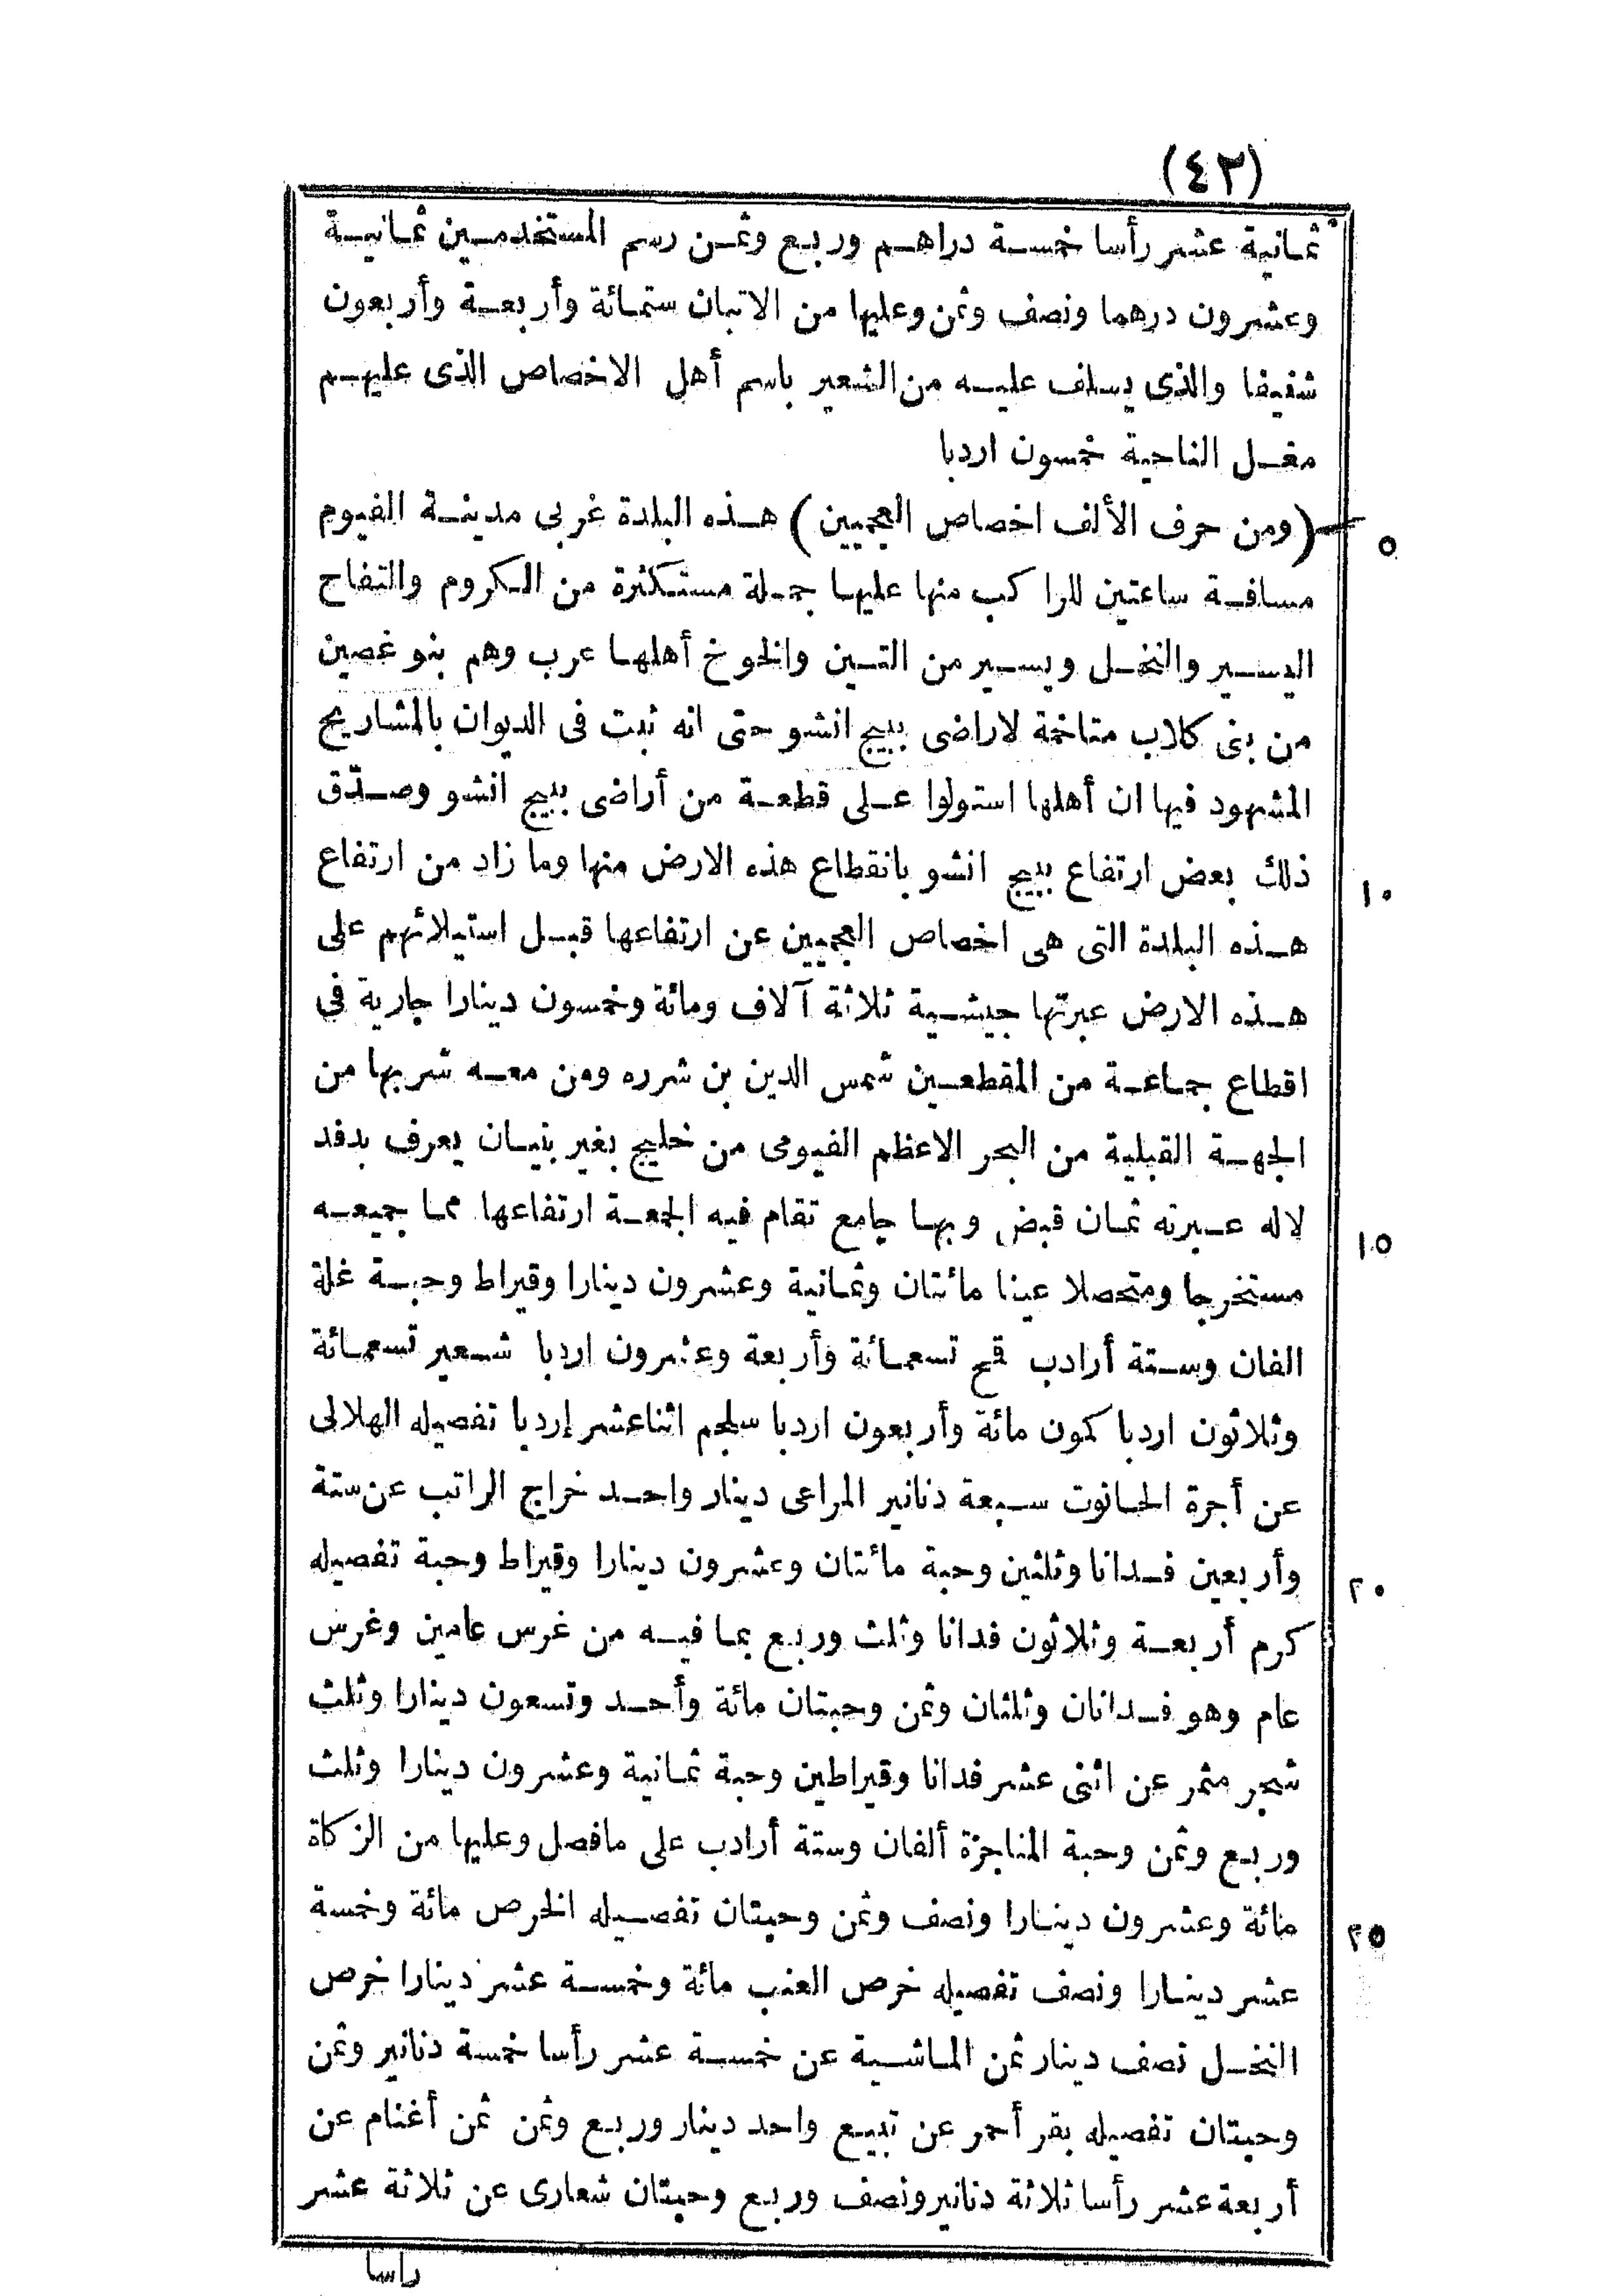 (٤٢)
ثمانية عشر رأسا خمسة دراهم وربع وثمن رسم المستخدمين ثمانية
وعشرون درهما ونصف وثمن وعليها من الاتبان ستمائة وأربعة وأربعون
شنيفا والذى يسلف عليه من الشعير باسم أهل الاخصاص الذى عليهم
مغل الناحية خمسون اردبا
(ومن حرف الألف اخصاص العجميين) هذه البلدة غربى مدينة الفيوم
٥
مسافة ساعتين للراكب منها عليها جملة مستكثرة من الكروم والتفاح
اليسير والنخل ويسير من التين والخوخ أهلها عرب وهم بنو غصين
من بنى كلاب متاخمة لاراضى ببيج انشو حتى انه ثبت فى الديوان بالمشاريح
المشهود فيها ان أهلها استولوا على قطعة من أراضى ببيج انشو وصدّق
ذلك بعض ارتفاع ببيج انشو بانقطاع هذه الارض منها وما زاد من ارتفاع
١٠
هذه البلدة التى هى اخصاص العجميين عن ارتفاعها قبل استيلائهم على
هذه الارض عبرتها جيشية ثلاثة آلاف ومائة وخمسون دينارا جارية في
اقطاع جماعة من المقطعين شمس الدين بن شرره ومن معه شربها من
الجهة القبلية من البحر الاعظم الفيومى من خليج بغير بنيان يعرف بدفد
لاله عبرته ثمان قبض وبها جامع تقام فيه الجمعة ارتفاعها مما جميعه
١٥
مستخرجا ومتحصلا عينا مائتان وثمانية وعشرون دينارا وقيراط وحبة غلة
الفان وستة أرادب قمح تسعمائة وأربعة وعشرون اردبا شعير تسعمائة
وثلاثون اردبا كمون مائة وأربعون اردبا سلجم اثناعشر إردبا تفصيله الهلالى
عن أجرة الحانوت سبعة دنانير المراعى دينار واحد خراج الراتب عن ستة
وأربعين فدانا وثلثين وحبة مائتان وعشرون دينارا وقيراط وحبة تفصيله
٢٠
كرم أربعة وثلاثون فدانا وثلث وربع بما فيه من غرس عامين وغرس
عام وهو فدانان وثلثان وثمن وحبتان مائة وأحد وتسعون دينارا وثلث
شجر مثمر عن اثنى عشر فدانا وقيراطين وحبة ثمانية وعشرون دينارا وثلث
وربع وثمن وحبة المناجزة ألفان وستة أرادب على مافصل وعليها من الزكاة
مائة وعشرون دينارا ونصف وثمن وحبتان تفصيله الخرص مائة وخمسة
٢٥
عشر دينارا ونصف تفصيله خرص العنب مائة وخمسة عشر دينارا خرص
النخل نصف دينار ثمن الماشية عن خمسة عشر رأسا خمسة دنانير وثمن
وحبتان تفصيله بقر أحمر عن تبيع واحد دينار وربع وثمن ثمن أغنام عن
أربعة عشر رأسا ثلاثة دنانير ونصف وربع وحبتان شعارى عن ثلاثة عشر
راسا